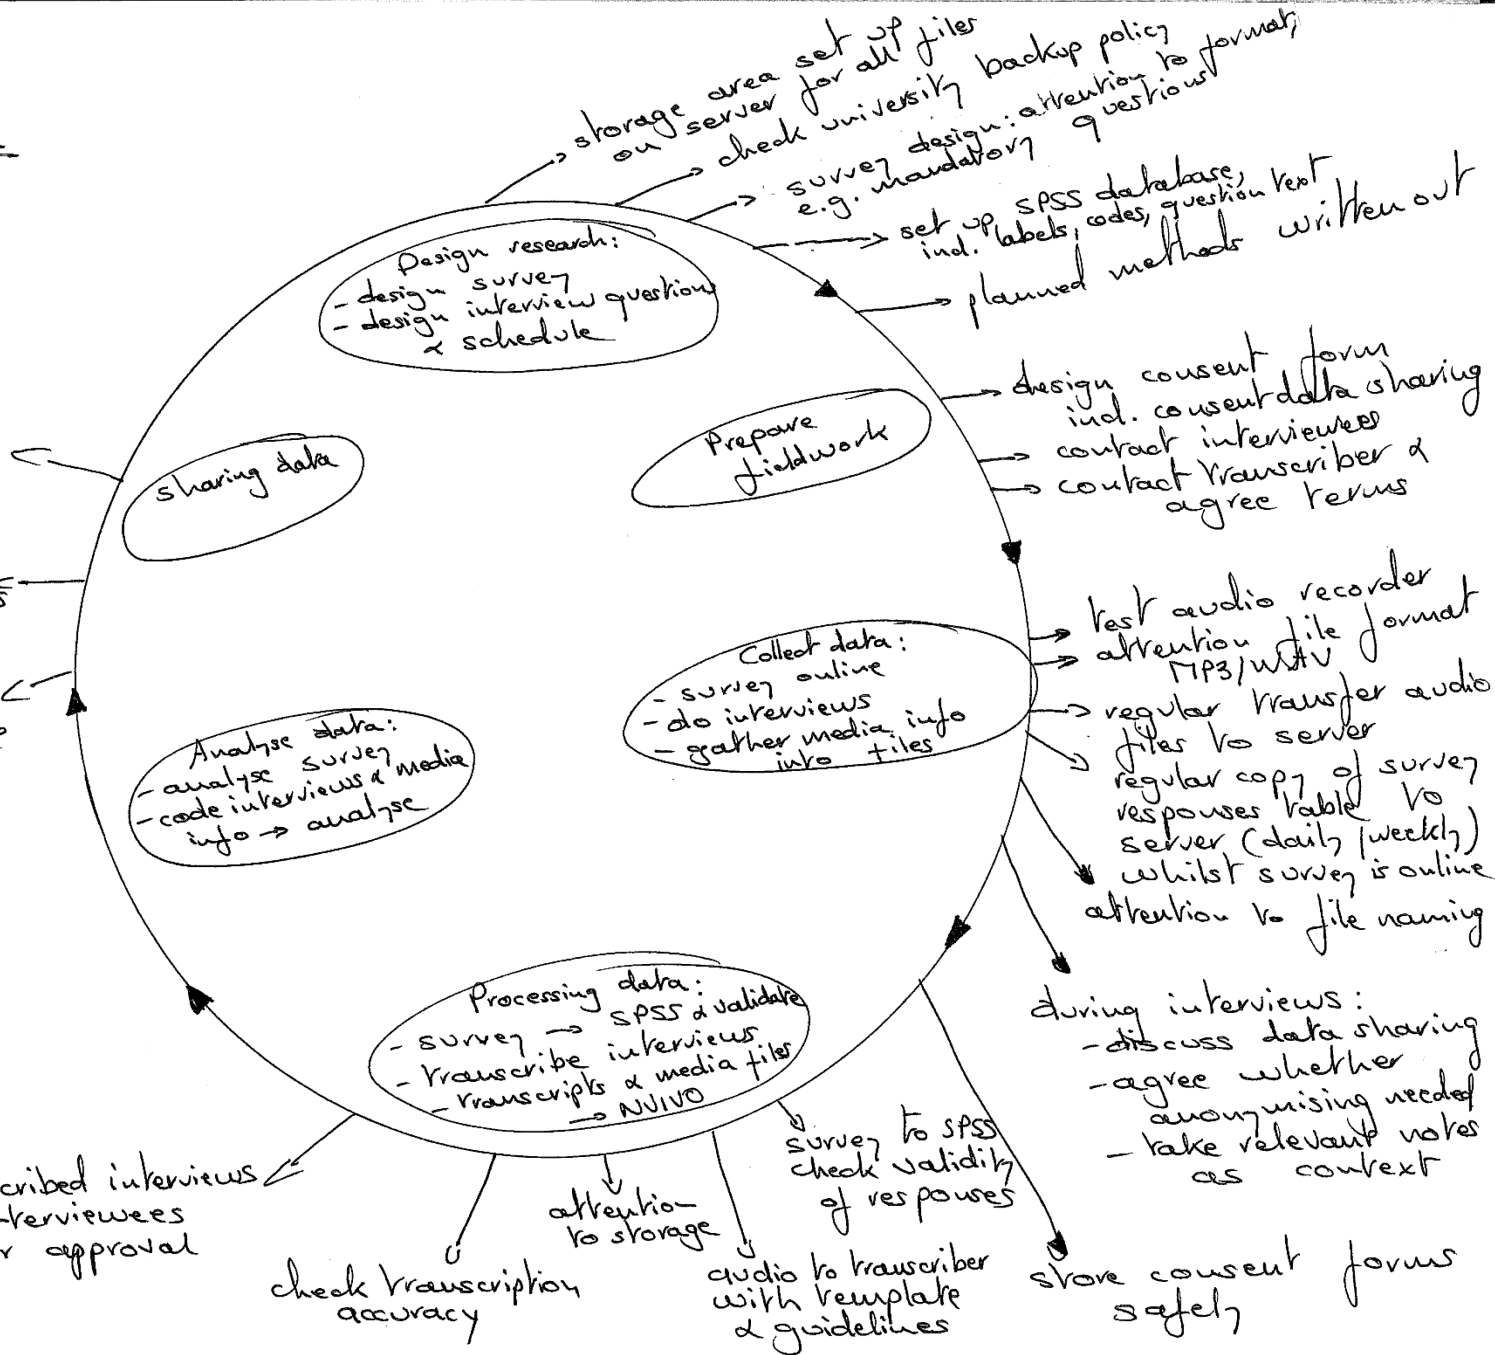 storage area set up
on server for all files
check university backup policy
survey design: attention to format,
e.g. mandatory questions
set up SPSS database,
incl. labels, codes, question text
planned methods written out
Design research:
- design survey
- design interview questions
& schedule
design consent form
incl. consent data sharing
contact interviewees
contact transcriber &
agree terms
Prepare
fieldwork
sharing data
test audio recorder
attention file format
MP3/WAV
regular transfer audio
files to server
regular copy of survey
responses table to
server (daily/weekly)
whilst survey is online
attention to file naming
Collect data:
- survey online
- do interviews
- gather media info
into files
Analyse data:
- analyse survey
- code interviews & media
info → analyse
during interviews:
- discuss data sharing
- agree whether
anonymising needed
- take relevant notes
as context
Processing data:
- survey → SPSS & validate
- transcribe interviews
- transcripts & media files
→ NVIVO
survey to SPSS
check validity
of responses
cribed interviews
terviewees
r approval
attention
to storage
check transcription
accuracy
audio to transcriber
with template
& guidelines
store consent forms
safely